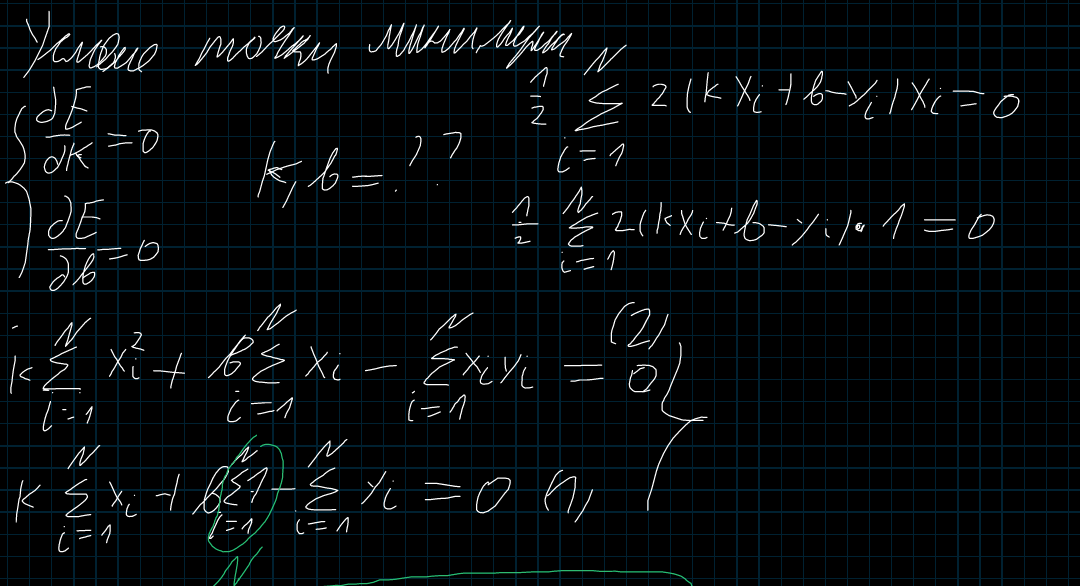 Условие точки минимума
∂E/∂k = 0
k, b = ??
1/2 ∑_{i=1}^{N} 2(kx_i + b − y_i)x_i = 0
∂E/∂b = 0
1/2 ∑_{i=1}^{N} 2(kx_i + b − y_i)·1 = 0
k ∑_{i=1}^{N} x_i^2 + b ∑_{i=1}^{N} x_i − ∑_{i=1}^{N} x_i y_i = 0 (2)
k ∑_{i=1}^{N} x_i + b ∑_{i=1}^{N} 1 − ∑_{i=1}^{N} y_i = 0 (1)
N